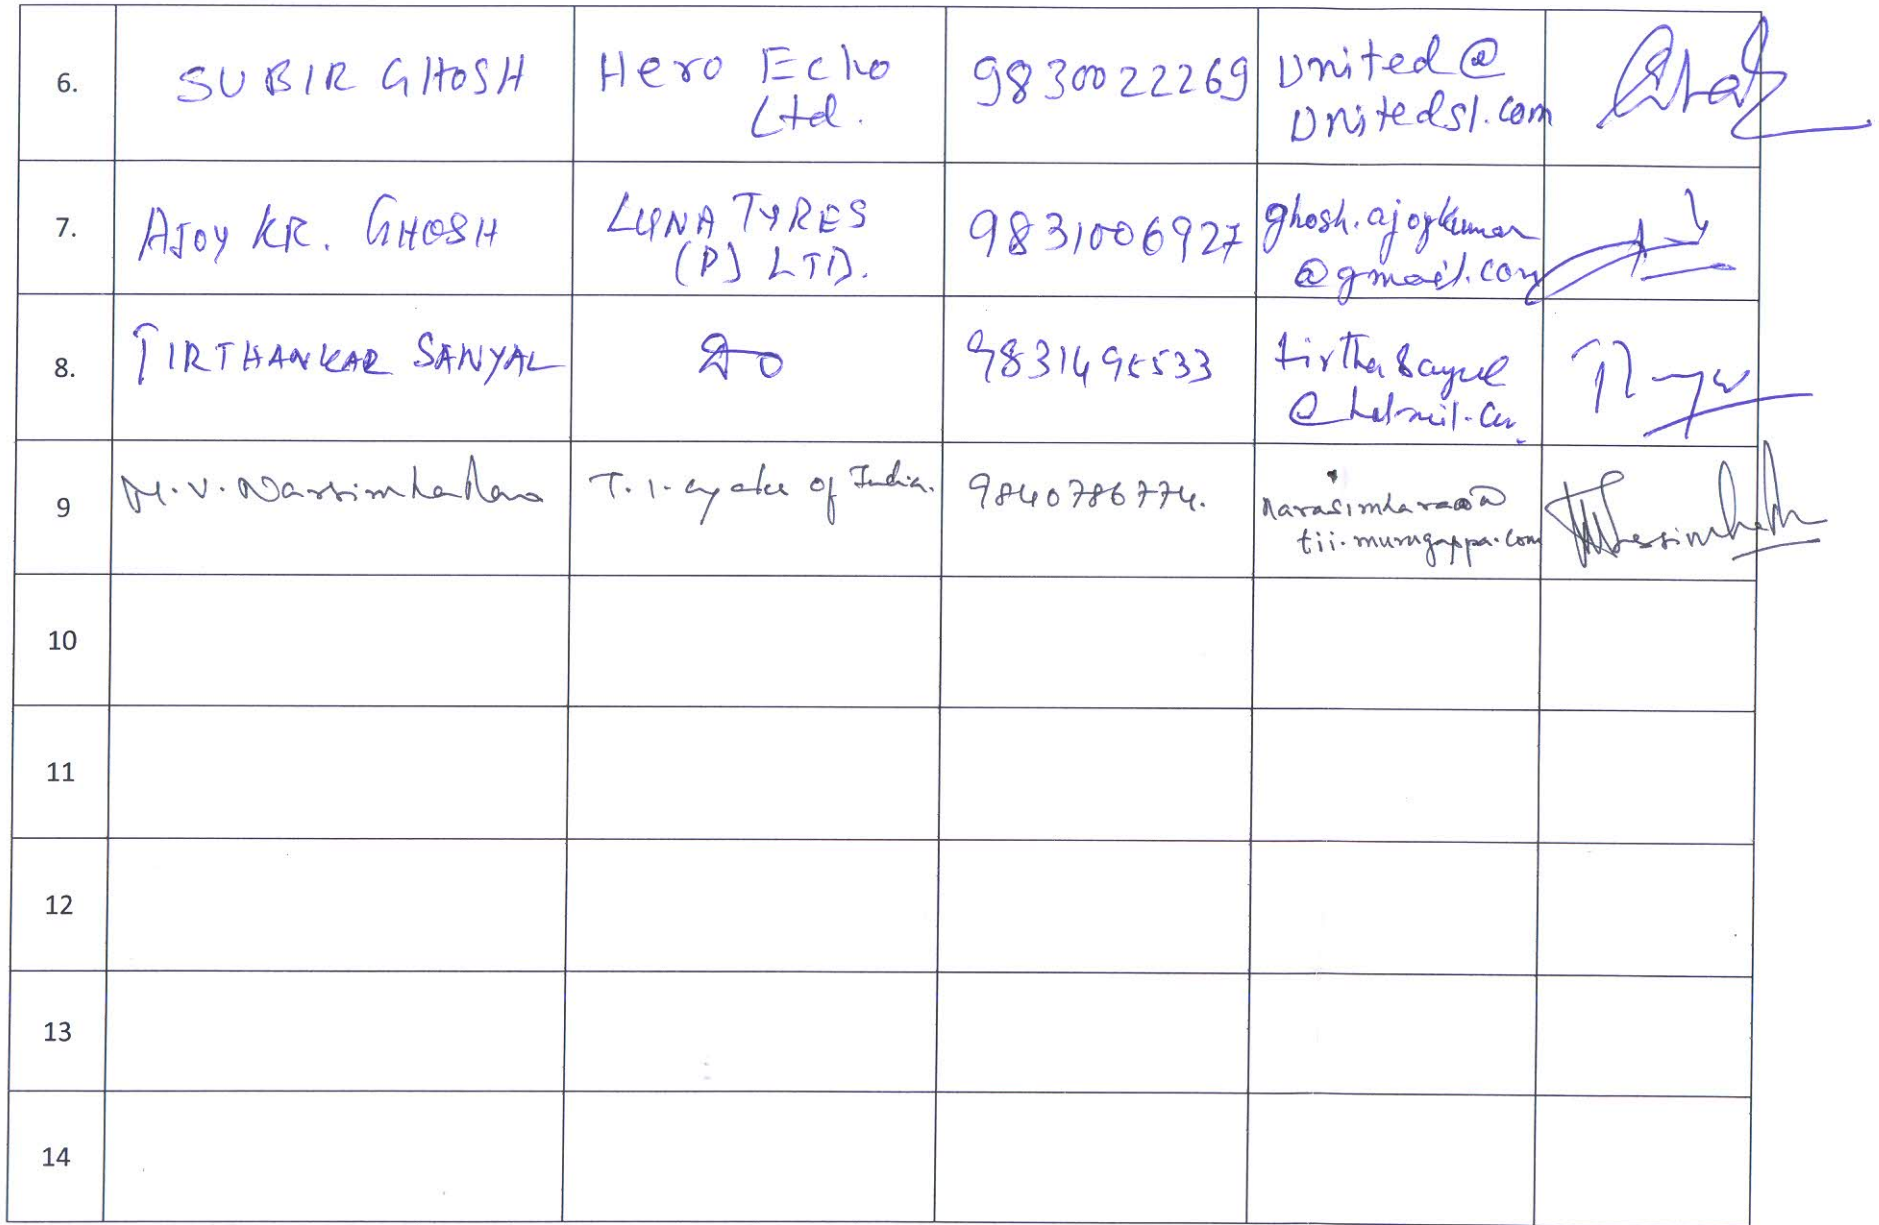 6. SUBIR GHOSH Hero Echo 9830022269 United@
Ltd. Unitedsl.com
7. AJOY KR. GHOSH LUNA TYRES 9831006927 ghosh.ajoykumar
(P) LTD. @gmail.com
8. TIRTHANKAR SANYAL Do 9831495533
9 M.V. Narsimha Rao T.I. cycles of India. 9840786774. narasimharao@
tii.murugappa.com
10
11
12
13
14